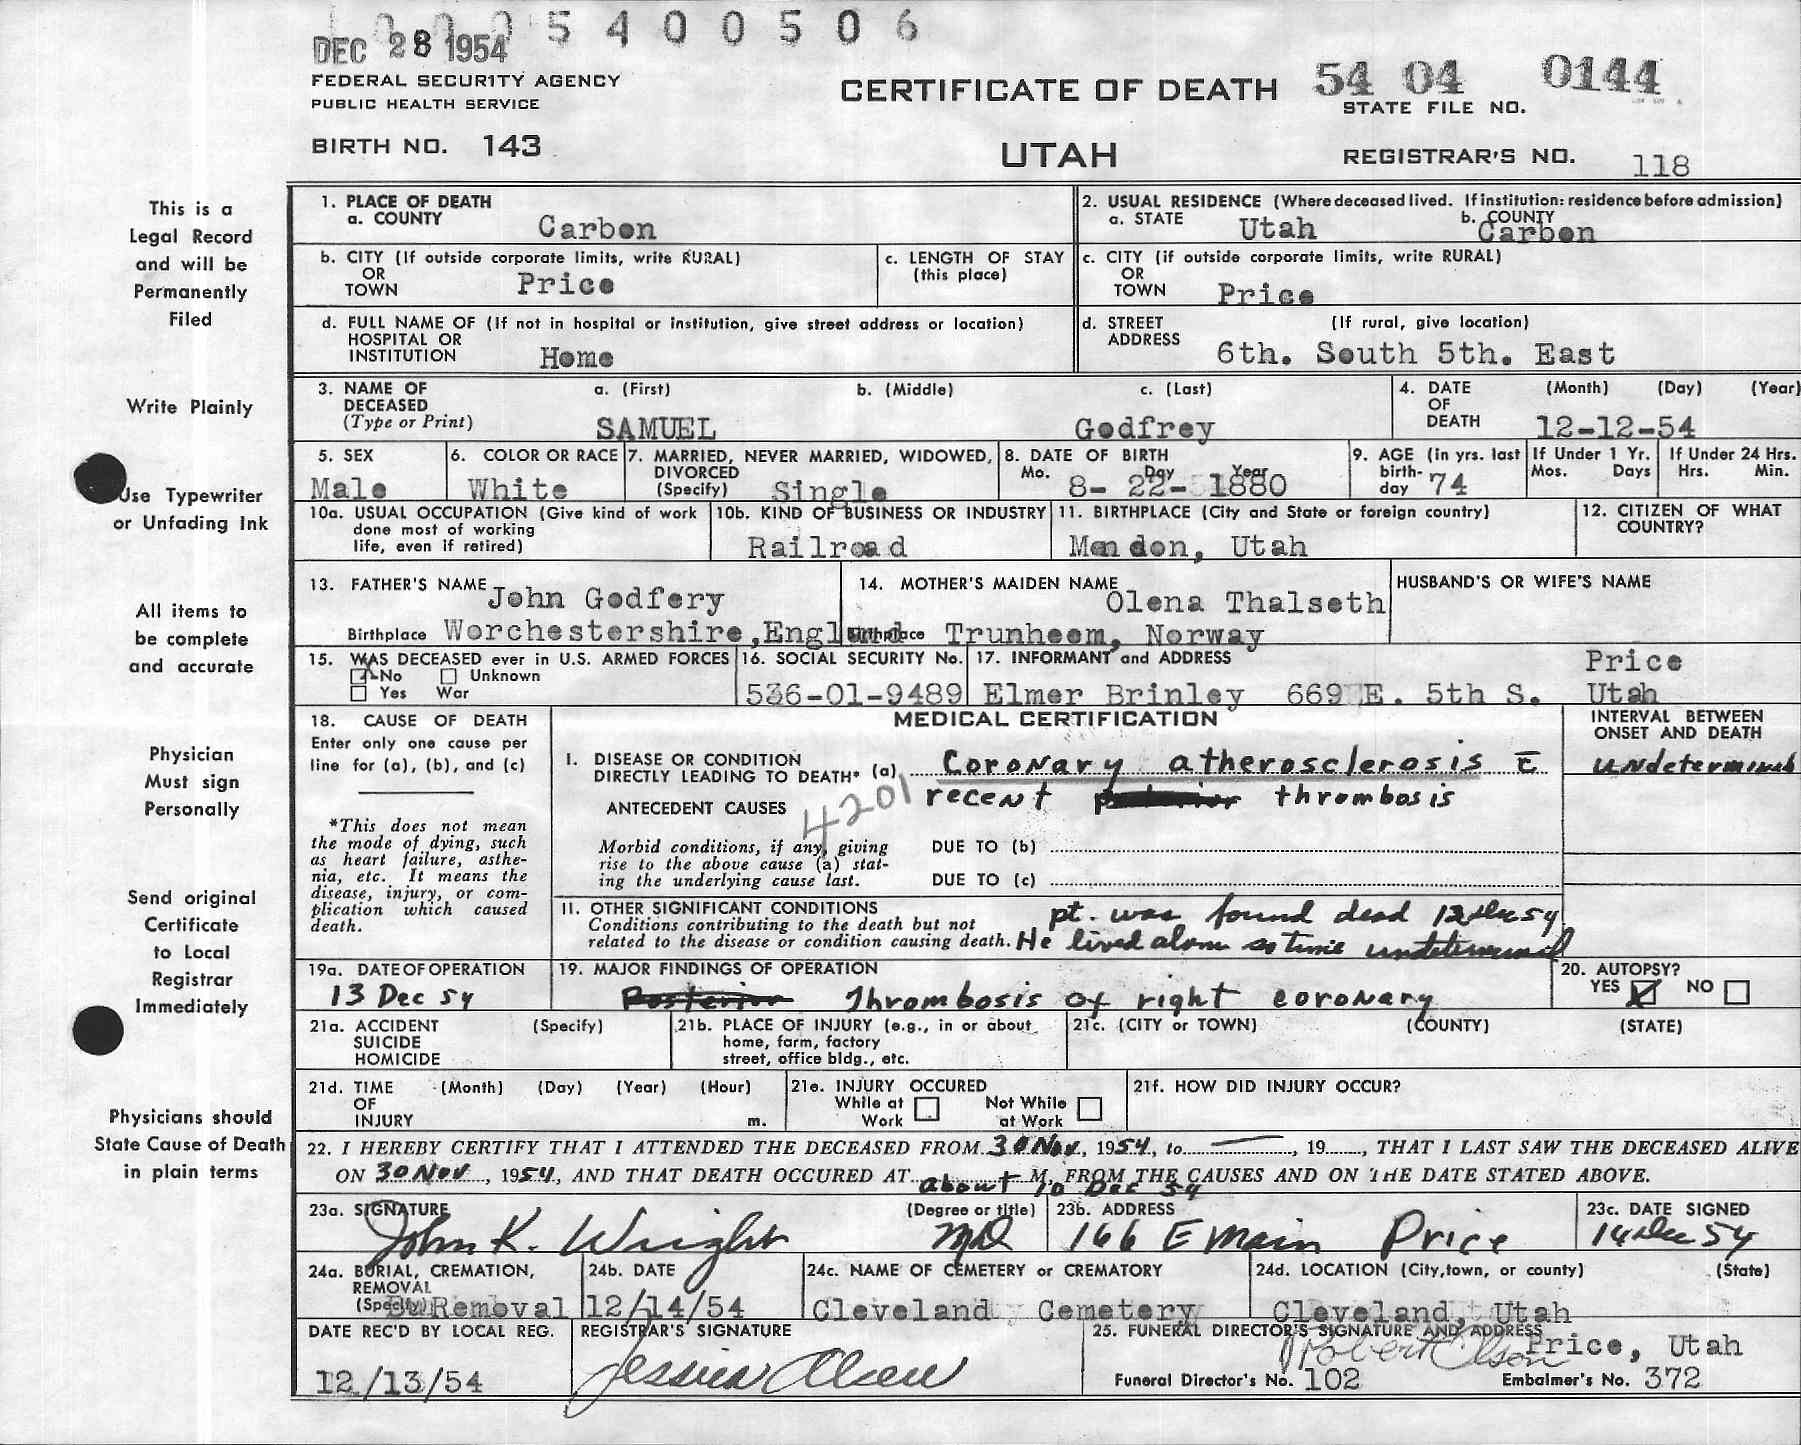 0 0 0 5 4 0 0 5 0 6
DEC 28 1954
FEDERAL SECURITY AGENCY
PUBLIC HEALTH SERVICE
BIRTH NO. 143
CERTIFICATE OF DEATH
UTAH
54 04 0144
STATE FILE NO.
REGISTRAR'S NO. 118
This is a
Legal Record
and will be
Permanently
Filed
Write Plainly
Use Typewriter
or Unfading Ink
All items to
be complete
and accurate
Physician
Must sign
Personally
Send original
Certificate
to Local
Registrar
Immediately
Physicians should
State Cause of Death
in plain terms
1. PLACE OF DEATH
a. COUNTY Carbon
2. USUAL RESIDENCE (Where deceased lived. If institution: residence before admission)
a. STATE Utah b. COUNTY Carbon
b. CITY (If outside corporate limits, write RURAL)
OR
TOWN Price
c. LENGTH OF STAY
(this place)
c. CITY (if outside corporate limits, write RURAL)
OR
TOWN Price
d. FULL NAME OF (If not in hospital or institution, give street address or location)
HOSPITAL OR
INSTITUTION Home
d. STREET (If rural, give location)
ADDRESS 6th. South 5th. East
3. NAME OF a. (First) b. (Middle) c. (Last)
DECEASED
(Type or Print) SAMUEL Godfrey
4. DATE (Month) (Day) (Year)
OF
DEATH 12-12-54
5. SEX
Male
6. COLOR OR RACE
White
7. MARRIED, NEVER MARRIED, WIDOWED,
DIVORCED
(Specify) Single
8. DATE OF BIRTH
Mo. Day Year
8- 22- 1880
9. AGE (in yrs. last
birth-
day 74
If Under 1 Yr.
Mos. Days
If Under 24 Hrs.
Hrs. Min.
10a. USUAL OCCUPATION (Give kind of work
done most of working
life, even if retired)
10b. KIND OF BUSINESS OR INDUSTRY
Railroad
11. BIRTHPLACE (City and State or foreign country)
Mendon, Utah
12. CITIZEN OF WHAT
COUNTRY?
13. FATHER'S NAME John Godfery
Birthplace Worchestershire,England
14. MOTHER'S MAIDEN NAME Olena Thalseth
Birthplace Trunheem, Norway
HUSBAND'S OR WIFE'S NAME
15. WAS DECEASED ever in U.S. ARMED FORCES
No Unknown
Yes War
16. SOCIAL SECURITY No.
536-01-9489
17. INFORMANT and ADDRESS Price
Elmer Brinley 669 E. 5th S. Utah
18. CAUSE OF DEATH
Enter only one cause per
line for (a), (b), and (c)
*This does not mean
the mode of dying, such
as heart failure, asthe-
nia, etc. It means the
disease, injury, or com-
plication which caused
death.
MEDICAL CERTIFICATION
INTERVAL BETWEEN
ONSET AND DEATH
I. DISEASE OR CONDITION
DIRECTLY LEADING TO DEATH* (a) Coronary atherosclerosis c̄ undetermined
ANTECEDENT CAUSES recent thrombosis
4201
Morbid conditions, if any, giving
rise to the above cause (a) stat-
ing the underlying cause last.
DUE TO (b)
DUE TO (c)
II. OTHER SIGNIFICANT CONDITIONS
Conditions contributing to the death but not
related to the disease or condition causing death.
pt. was found dead 12 Dec 54
He lived alone so time undetermined
19a. DATE OF OPERATION
13 Dec 54
19. MAJOR FINDINGS OF OPERATION
Posterior Thrombosis of right coronary
20. AUTOPSY?
YES NO
21a. ACCIDENT (Specify)
SUICIDE
HOMICIDE
21b. PLACE OF INJURY (e.g., in or about
home, farm, factory
street, office bldg., etc.
21c. (CITY or TOWN) (COUNTY) (STATE)
21d. TIME (Month) (Day) (Year) (Hour)
OF
INJURY m.
21e. INJURY OCCURED
While at Not While
Work at Work
21f. HOW DID INJURY OCCUR?
22. I HEREBY CERTIFY THAT I ATTENDED THE DECEASED FROM 30 Nov, 1954, to , 19 , THAT I LAST SAW THE DECEASED ALIVE
ON 30 Nov, 1954, AND THAT DEATH OCCURED AT about 10 Dec 54 M, FROM THE CAUSES AND ON THE DATE STATED ABOVE.
23a. SIGNATURE (Degree or title)
John K. Wright MD
23b. ADDRESS
166 E Main Price
23c. DATE SIGNED
14 Dec 54
24a. BURIAL, CREMATION,
REMOVAL
(Specify) Removal
24b. DATE
12/14/54
24c. NAME OF CEMETERY or CREMATORY
Cleveland Cemetery
24d. LOCATION (City, town, or county) (State)
Cleveland, Utah
DATE REC'D BY LOCAL REG.
12/13/54
REGISTRAR'S SIGNATURE
Jessica Olsen
25. FUNERAL DIRECTOR'S SIGNATURE AND ADDRESS
Robert Olson Price, Utah
Funeral Director's No. 102 Embalmer's No. 372